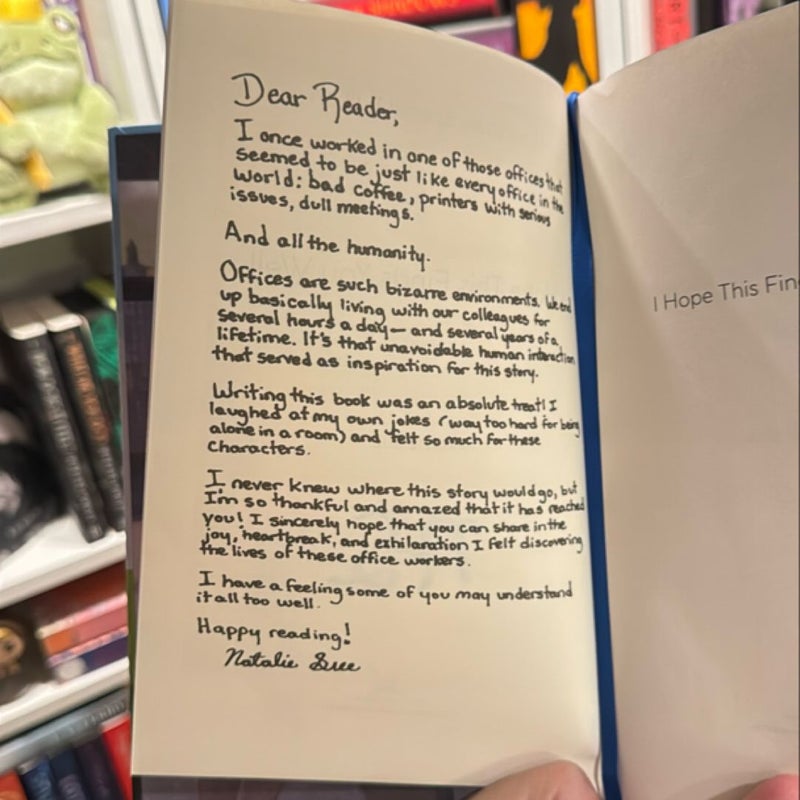 Dear Reader,
I once worked in one of those offices that
seemed to be just like every office in the
world: bad coffee, printers with serious
issues, dull meetings.
And all the humanity.
Offices are such bizarre environments. We end
up basically living with our colleagues for
several hours a day— and several years of a
lifetime. It's that unavoidable human interaction
that served as inspiration for this story.
Writing this book was an absolute treat! I
laughed at my own jokes (way too hard for being
alone in a room) and felt so much for these
characters.
I never knew where this story would go, but
I'm so thankful and amazed that it has reached
you! I sincerely hope that you can share in the
joy, heartbreak, and exhilaration I felt discovering
the lives of these office workers.
I have a feeling some of you may understand
it all too well.
Happy reading!
Natalie Sue
I Hope This Fin